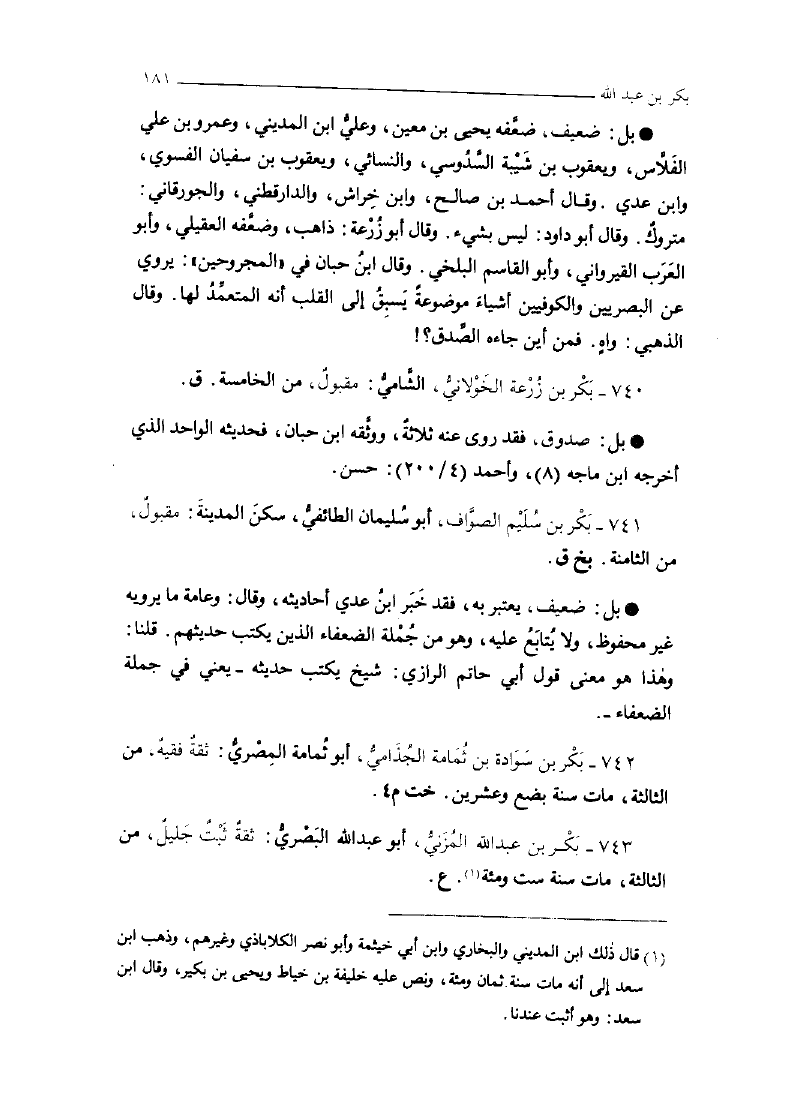 بكر بن عبد الله ١٨١
● بل: ضعيف، ضعَّفه يحيى بن معين، وعليُّ ابن المديني، وعمرو بن علي
الفَلَّاس، ويعقوب بن شَيْبة السَّدُوسي، والنسائي، ويعقوب بن سفيان الفسوي،
وابن عدي. وقال أحمد بن صالح، وابن خِراش، والدارقطني، والجورقاني:
متروكٌ. وقال أبو داود: ليس بشيء. وقال أبو زُرْعة: ذاهب، وضعَّفه العقيلي، وأبو
العَرَب القيرواني، وأبو القاسم البلخي. وقال ابنُ حبان في «المجروحين»: يروي
عن البصريين والكوفيين أشياءَ موضوعةً يَسبِقُ إلى القلب أنه المتعمِّدُ لها. وقال
الذهبي: واهٍ. فمن أين جاءه الصِّدق؟!
٧٤٠ ـ بَكْر بن زُرْعة الخَوْلانيُّ، الشَّاميُّ: مقبولٌ، من الخامسة. ق.
● بل: صدوق، فقد روى عنه ثلاثةٌ، ووثَّقه ابن حبان، فحديثه الواحد الذي
أخرجه ابن ماجه (٨)، وأحمد (٢٠٠/٤): حسن.
٧٤١ ـ بَكْر بن سُلَيْم الصوَّاف، أبو سُليمان الطائفيُّ، سكنَ المدينةَ: مقبولٌ،
من الثامنة. بخ ق.
● بل: ضعيف، يعتبر به، فقد خَبَر ابنُ عدي أحاديثه، وقال: وعامة ما يرويه
غير محفوظ، ولا يُتابَعُ عليه، وهو من جُمْلة الضعفاء الذين يكتب حديثهم. قلنا:
وهٰذا هو معنى قول أبي حاتم الرازي: شيخ يكتب حديثه ـ يعني في جملة
الضعفاء ـ.
٧٤٢ ـ بَكْر بن سَوَادة بن ثُمَامة الجُذَاميُّ، أبو ثُمامة المِصْريُّ: ثقةٌ فقيهٌ، من
الثالثة، مات سنة بضع وعشرين. خت م٤.
٧٤٣ ـ بَكْر بن عبدالله المُزَنيُّ، أبو عبدالله البَصْريُّ: ثقةٌ ثَبْتٌ جَليلٌ، من
الثالثة، مات سنة ست ومئة(١). ع.
(١) قال ذٰلك ابن المديني والبخاري وابن أبي خيثمة وأبو نصر الكلاباذي وغيرهم، وذهب ابن
سعد إلى أنه مات سنة ثمان ومئة، ونص عليه خليفة بن خياط ويحيى بن بكير، وقال ابن
سعد: وهو أثبت عندنا.